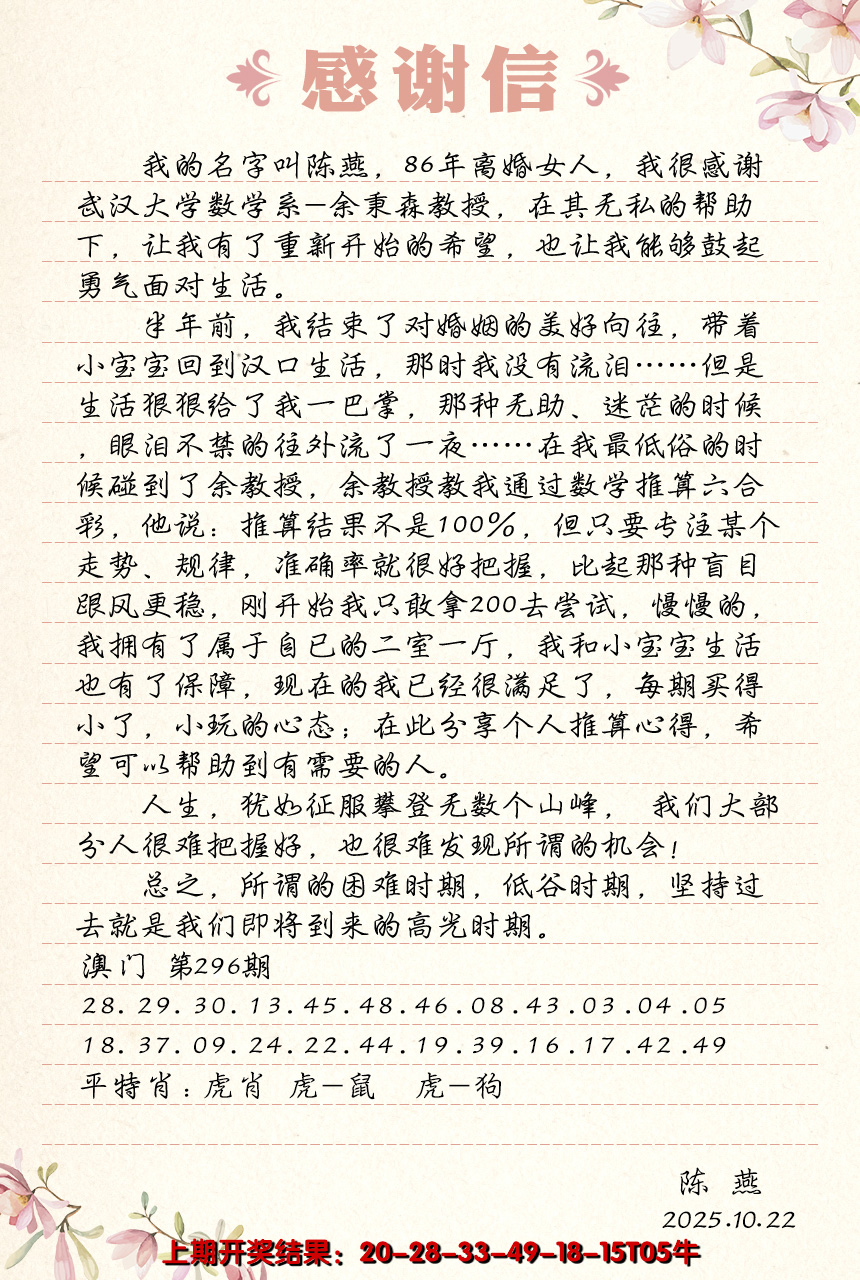 感谢信
我的名字叫陈燕，86年离婚女人，我很感谢
武汉大学数学系—余秉森教授，在其无私的帮助
下，让我有了重新开始的希望，也让我能够鼓起
勇气面对生活。
半年前，我结束了对婚姻的美好向往，带着
小宝宝回到汉口生活，那时我没有流泪……但是
生活狠狠给了我一巴掌，那种无助、迷茫的时候
，眼泪不禁的往外流了一夜……在我最低俗的时
候碰到了余教授，余教授教我通过数学推算六合
彩，他说：推算结果不是100%，但只要专注某个
走势、规律，准确率就很好把握，比起那种盲目
跟风更稳，刚开始我只敢拿200去尝试，慢慢的，
我拥有了属于自已的二室一厅，我和小宝宝生活
也有了保障，现在的我已经很满足了，每期买得
小了，小玩的心态；在此分享个人推算心得，希
望可以帮助到有需要的人。
人生，犹如征服攀登无数个山峰， 我们大部
分人很难把握好，也很难发现所谓的机会！
总之，所谓的困难时期，低谷时期，坚持过
去就是我们即将到来的高光时期。
澳门 第296期
28.29.30.13.45.48.46.08.43.03.04.05
18.37.09.24.22.44.19.39.16.17.42.49
平特肖：虎肖 虎—鼠 虎—狗
陈 燕
2025.10.22
上期开奖结果：20-28-33-49-18-15T05牛